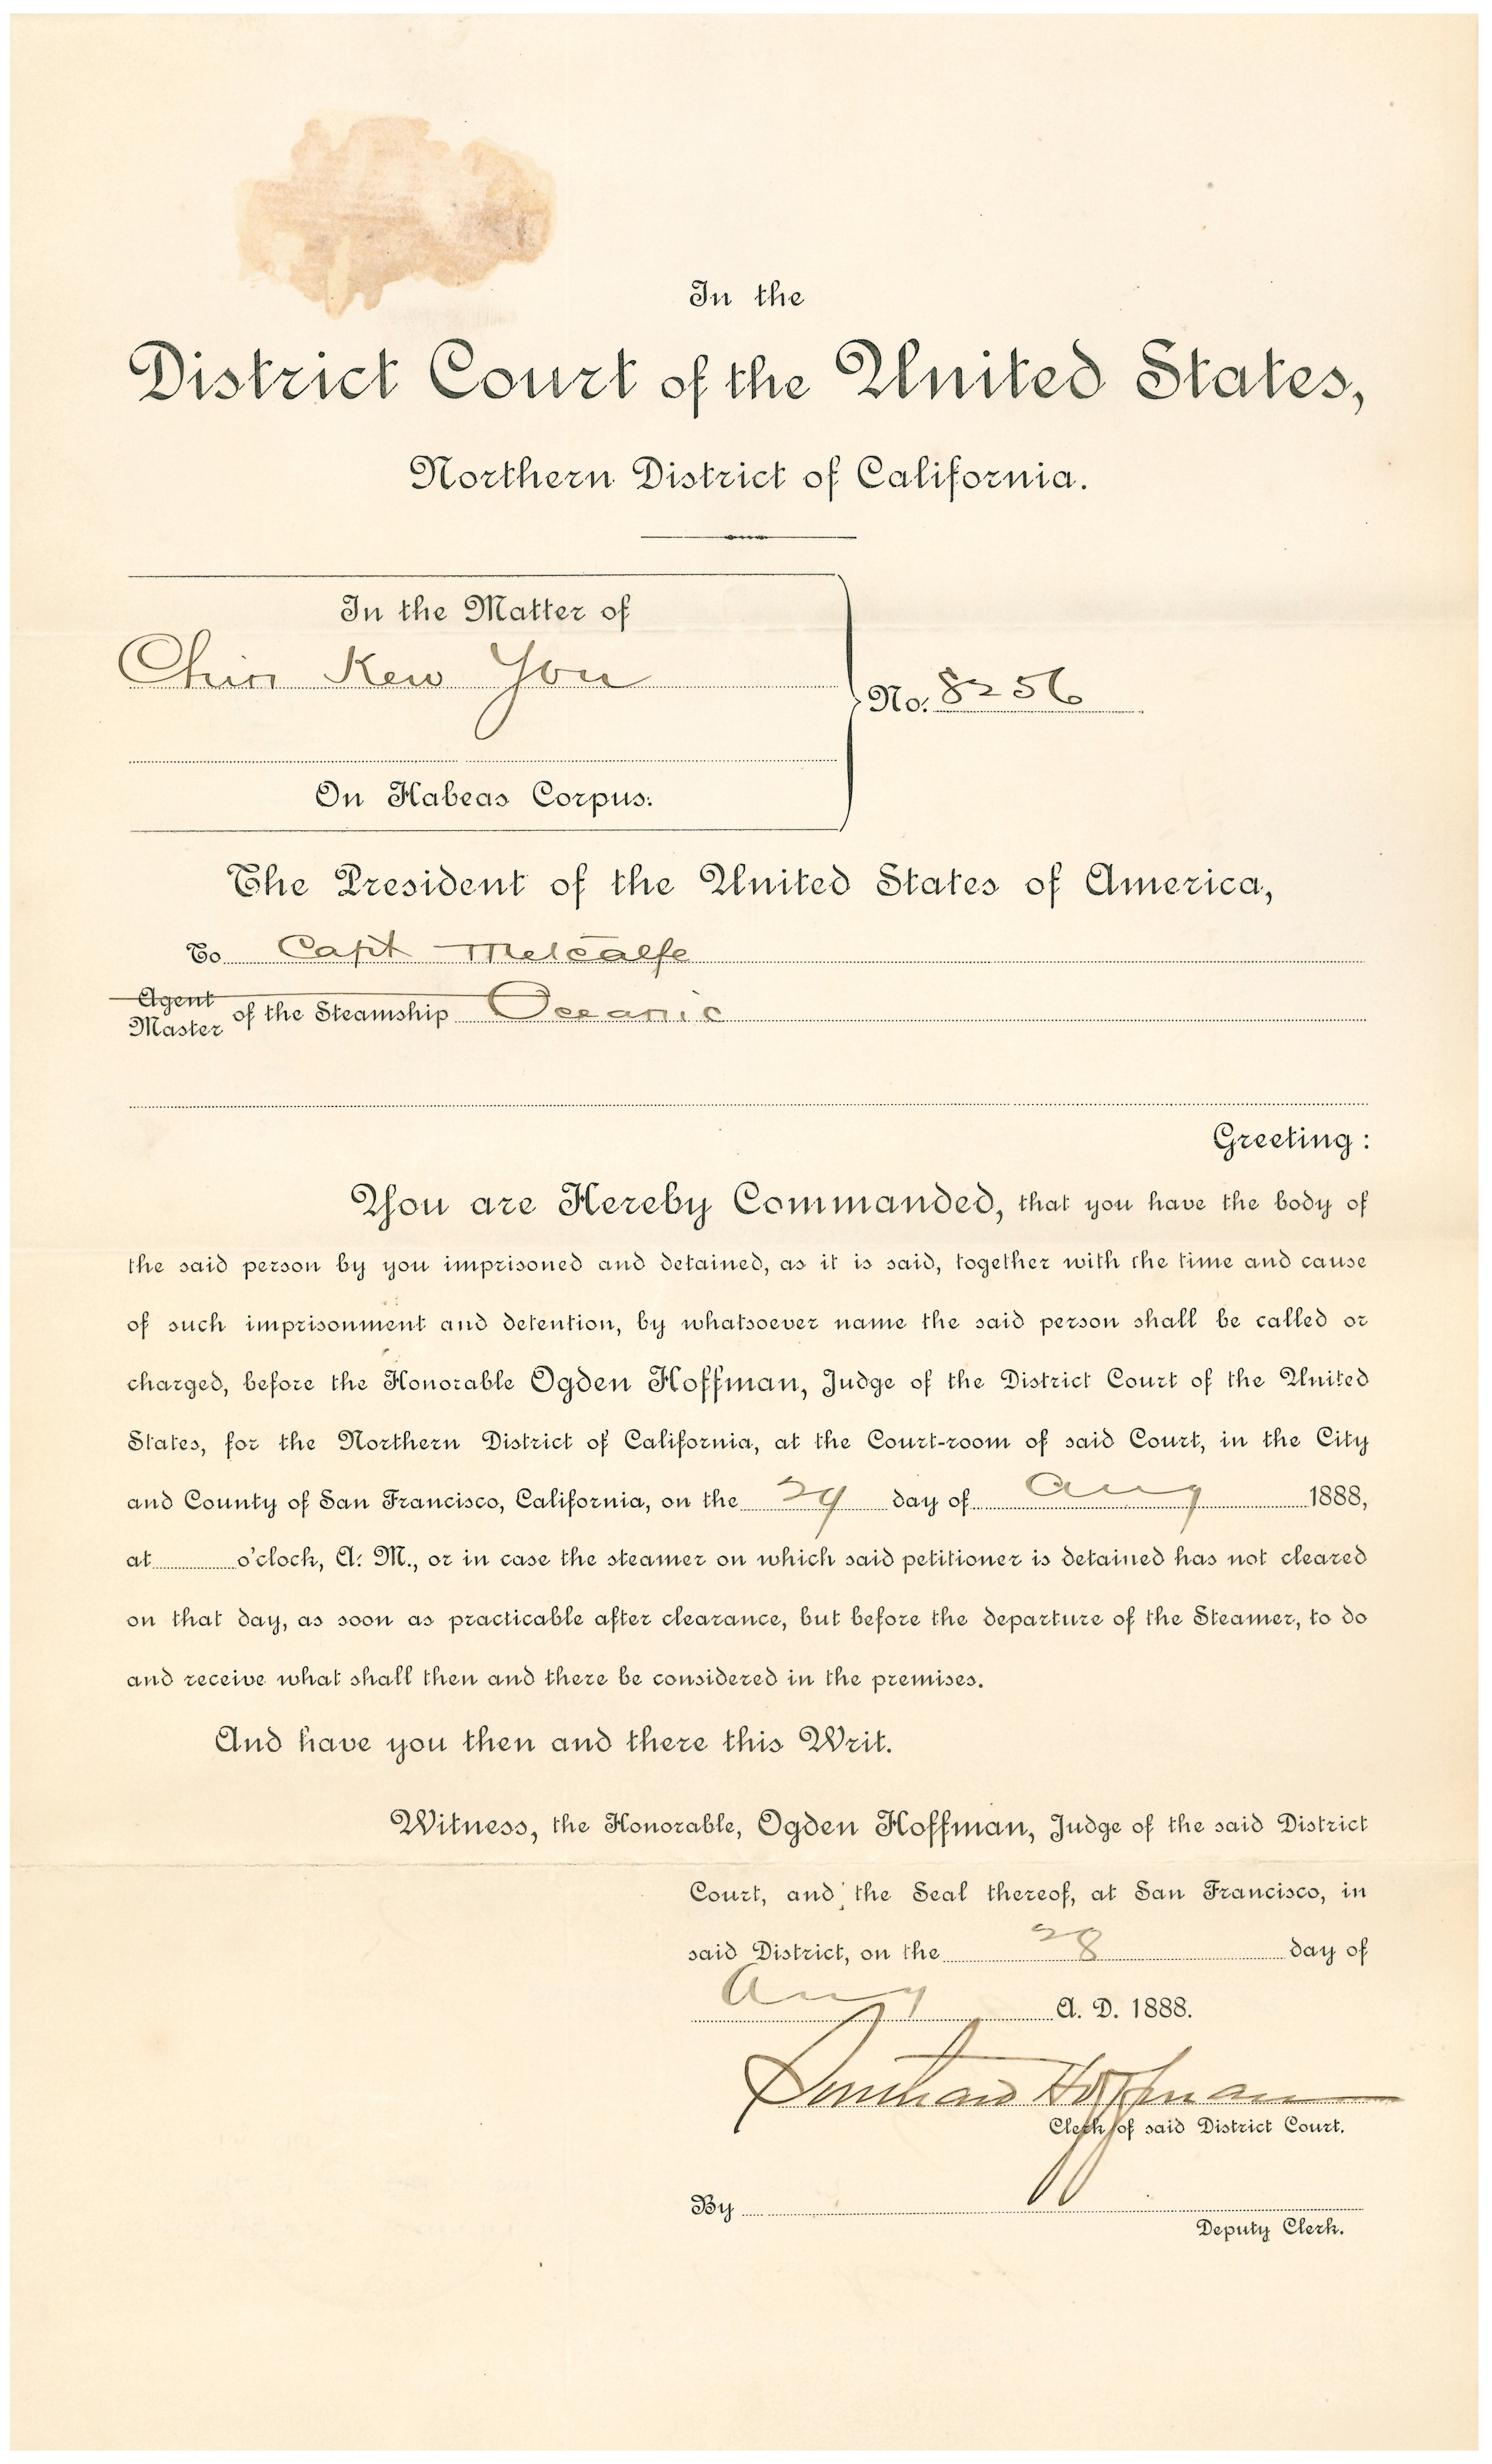 In the
District Court of the United States,
Northern District of California.
In the Matter of
Chin Kew You
No. 8256
On Habeas Corpus.
The President of the United States of America,
To Capt Metcalfe
Agent
Master of the Steamship Oceanic
Greeting:
You are Hereby Commanded, that you have the body of
the said person by you imprisoned and detained, as it is said, together with the time and cause
of such imprisonment and detention, by whatsoever name the said person shall be called or
charged, before the Honorable Ogden Hoffman, Judge of the District Court of the United
States, for the Northern District of California, at the Court-room of said Court, in the City
and County of San Francisco, California, on the 29 day of Aug 1888,
at o'clock, A. M., or in case the steamer on which said petitioner is detained has not cleared
on that day, as soon as practicable after clearance, but before the departure of the Steamer, to do
and receive what shall then and there be considered in the premises.
And have you then and there this Writ.
Witness, the Honorable, Ogden Hoffman, Judge of the said District
Court, and the Seal thereof, at San Francisco, in
said District, on the 28 day of
Aug A. D. 1888.
Southard Hoffman
Clerk of said District Court.
By
Deputy Clerk.